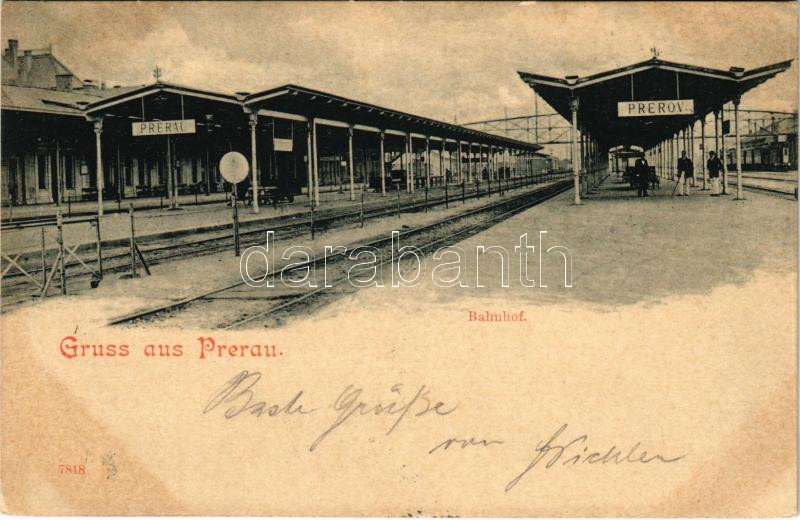 PRERAU
PREROV.
darabanth
Bahnhof.
Gruss aus Prerau.
Beste Grüße
von
7818